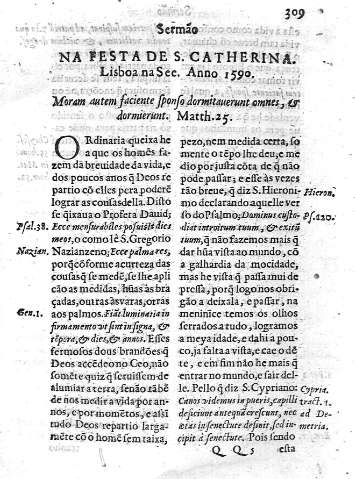 309
Sermão
NA FESTA DE S. CATHERINA.
Lisboa na See. Anno 1590.
Moram autem faciente sponso dormitauerunt omnes, &
dormierunt. Matth. 25.
ORdinaria queixa he
a que os homẽs fa-
zem da breuidade da vida, e
dos poucos anos q̃ Deos re-
partio cõ elles pera poderẽ
lograr as cousas della. Disto
se q̃ixaua o Profera Dauid;
Psal. 38.
Ecce mensurabiles posuisti dies
meos, o como lê S. Gregorio
Nazian.
Nazianzeno; Ecce palmares,
porq̃ cõforme a curteza das
cousas q̃ se medẽ, se lhe apli-
cão as medidas, hũas às bra-
çadas, outras às varas, outras
Gen. 1.
aos palmos. Fiãt luminaria in
firmamento vt sint in signa, &
tẽpora, & dies, & annos. Esses
fermosos dous brandões q̃
Deos accẽdeo no Ceo, não
somẽte quiz q̃ seruissem de
alumiar a terra, senão tãbẽ
de nos medir a vida por an-
nos, e por momẽtos, e assi
tudo Deos repartio larga-
mẽte cõ o homẽ sem taixa,
pezo, nem medida certa, so
mente o tẽpo lhe deu, e me
dio por justa cõta de q̃ não
pòde passar; e esse às vezes
tão breue, q̃ diz S. Hieroni-
Hieron.
mo declarando aquelle ver-
so do Psalmo; Dominus custo-
Ps. 120.
diat introitum tuum, & exitũ
tuum, q̃ não fazemos mais q̃
dar hũa vista ao mundo, cõ
a galhardia da mocidade,
mas he vista q̃ passa mui de
pressa, porq̃ logo nos obri-
gão a deixala, e passar, na
meninice temos os olhos
serrados a tudo, logramos
a meya idade, e dahi a pou-
co, ja falta a vista, e cae o dẽ
te, e em fim não he mais q̃
entrar no mundo, e sair del-
le. Pello q̃ diz S. Cypriano:
Cypria.
Canos videmus in pueris, capilli
tract. 1.
deficiunt antequã crescunt, nec
ad De-
ætas in senectute desinit, sed in-
metria.
cipit à senectute. Pois sendo
Q q 3
esta